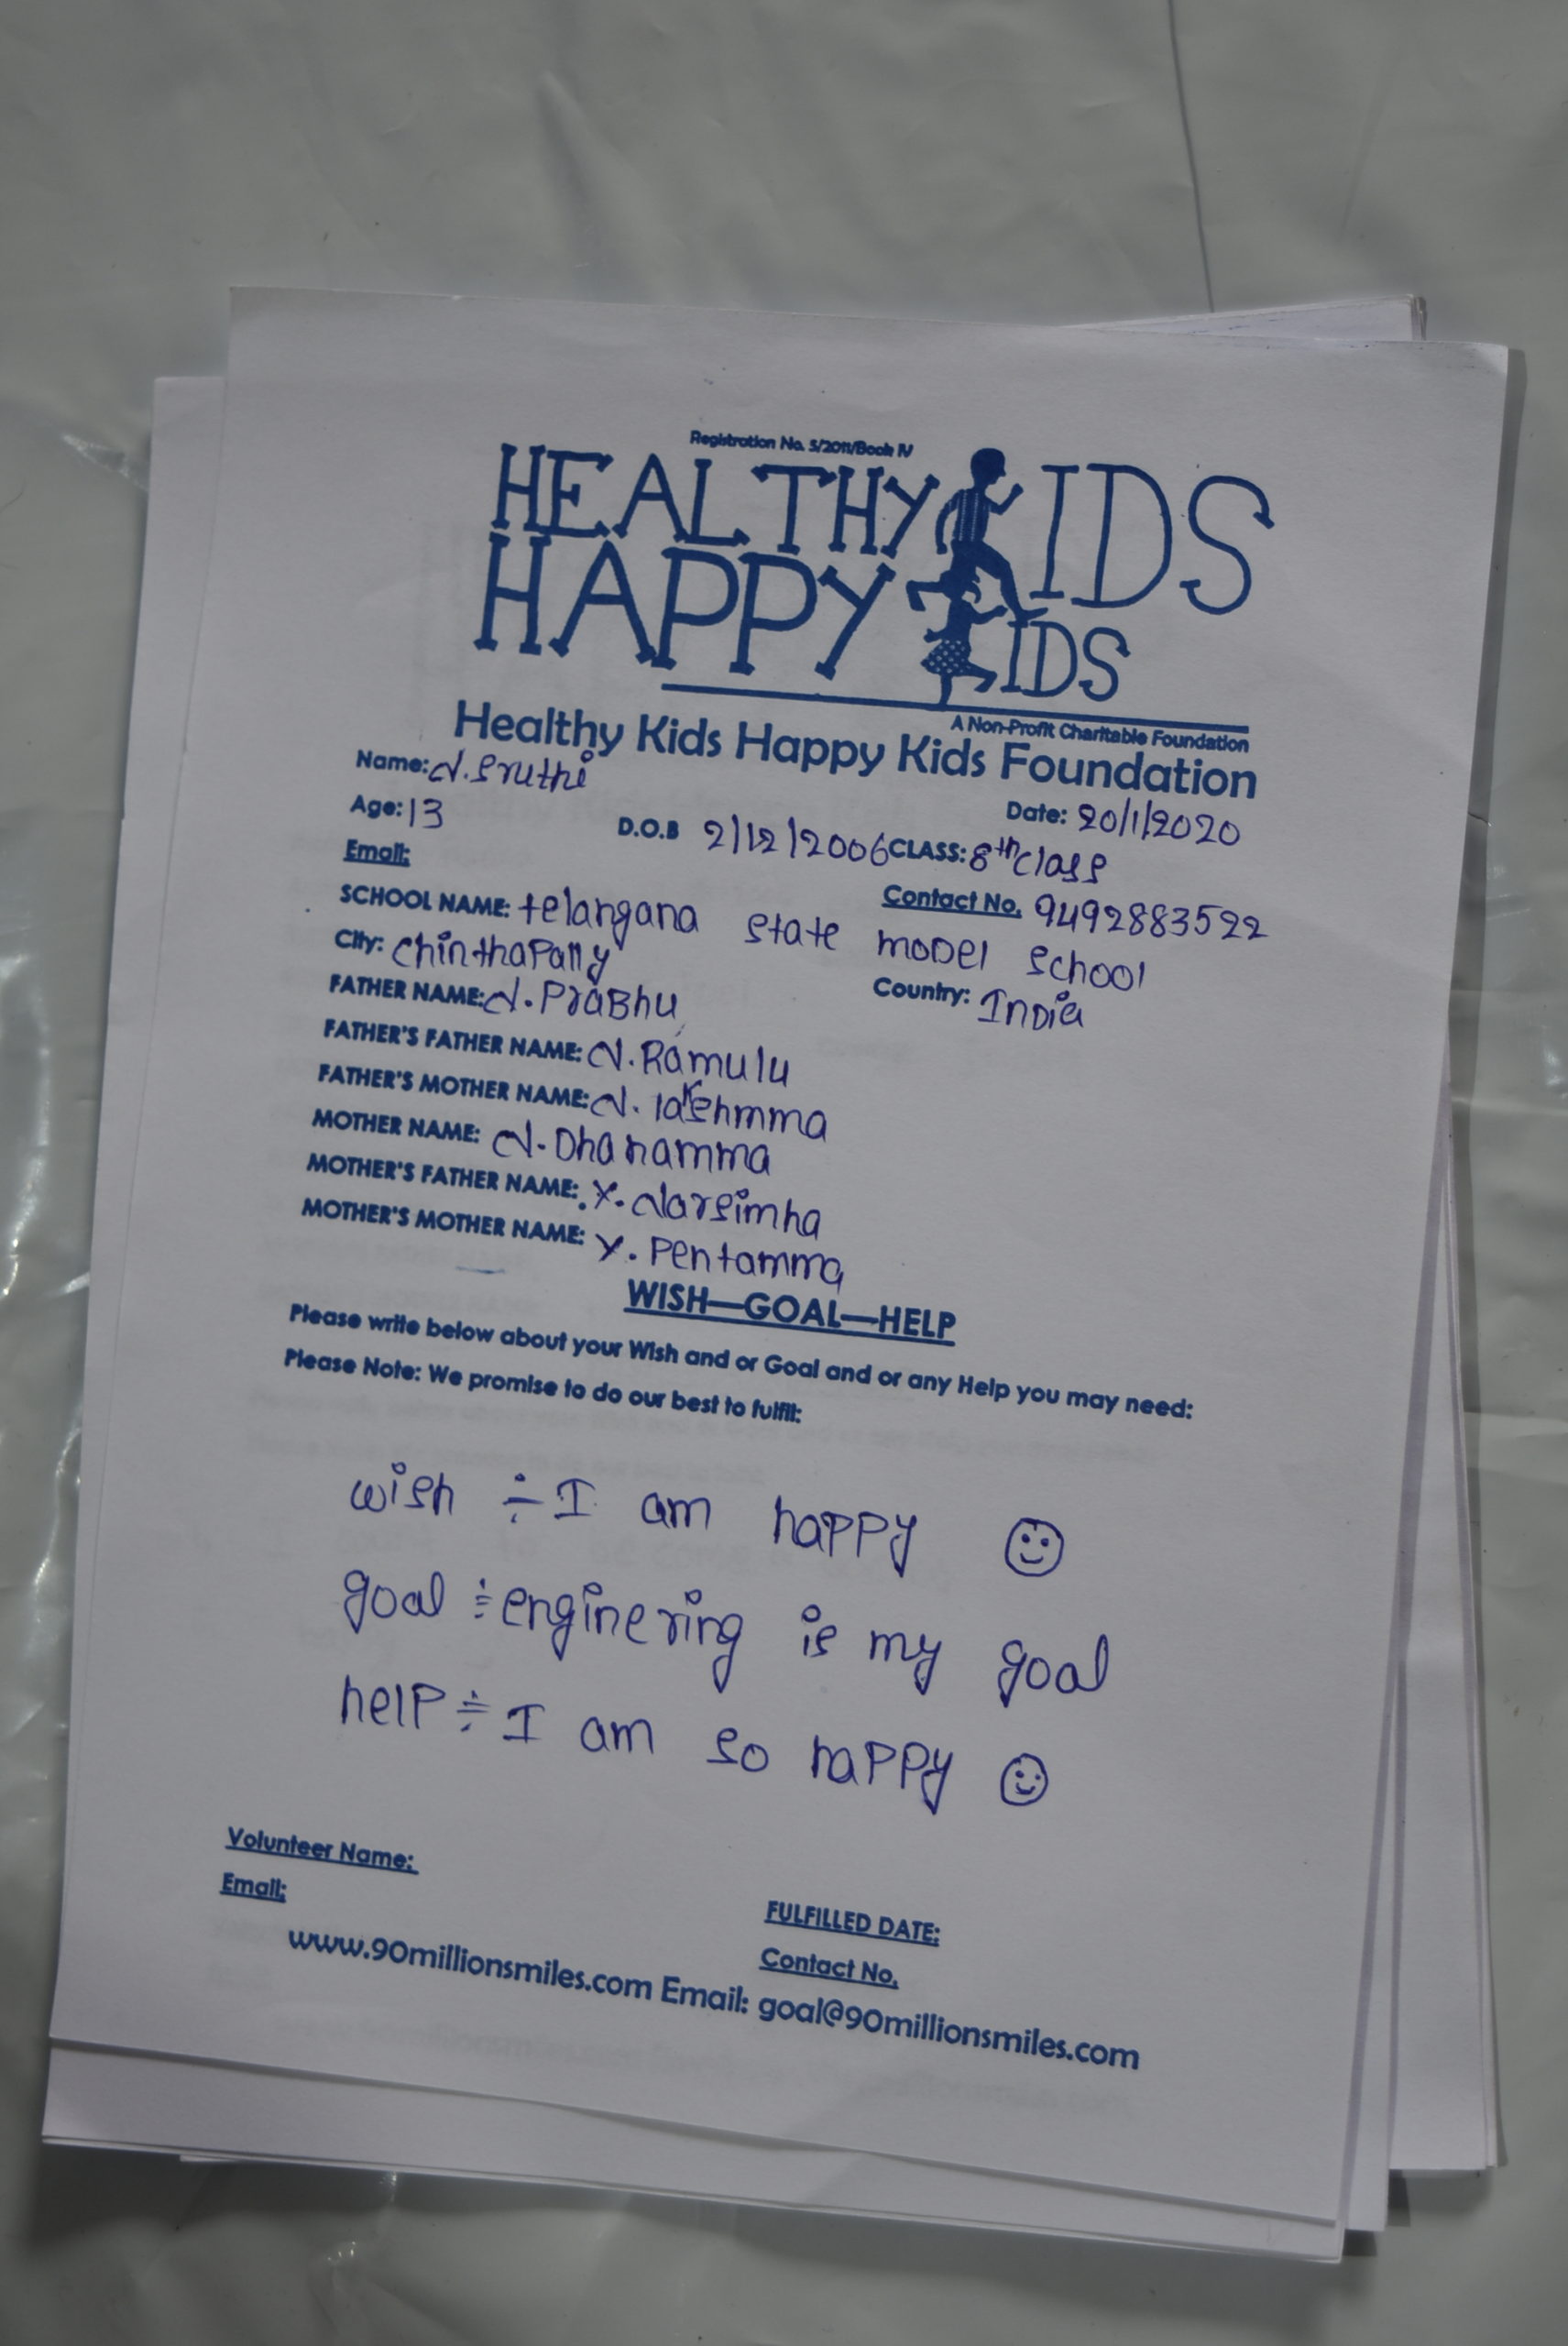 Registration No. 5/2011/Book IV
HEALTHY KIDS
HAPPY KIDS
A Non-Profit Charitable Foundation
Healthy Kids Happy Kids Foundation
Name: N. Sruthi
Date: 20/1/2020
Age: 13 D.O.B 2/12/2006 CLASS: 8th class
Email:
Contact No. 9492883522
SCHOOL NAME: telangana state model school
City: chinthapally
Country: India
FATHER NAME: N. Prabhu
FATHER'S FATHER NAME: N. Ramulu
FATHER'S MOTHER NAME: N. lakshmma
MOTHER NAME: N. Dhanamma
MOTHER'S FATHER NAME: Y. Narsimha
MOTHER'S MOTHER NAME: Y. Pentamma
WISH—GOAL—HELP
Please write below about your Wish and or Goal and or any Help you may need:
Please Note: We promise to do our best to fulfil:
wish ÷ I am happy ☺
goal ÷ enginering is my goal
help ÷ I am so happy ☺
Volunteer Name:
FULFILLED DATE:
Email:
Contact No.
www.90millionsmiles.com Email: goal@90millionsmiles.com